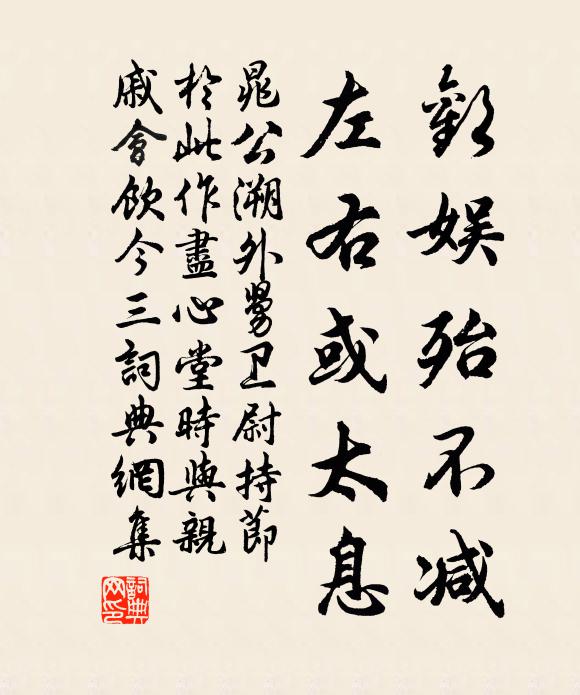 歡娱殆不减
左右或太息
晁公溯外舅卫尉持節
於此作盡心堂時與親
戚會飲今三詞典網集
詞典
网印